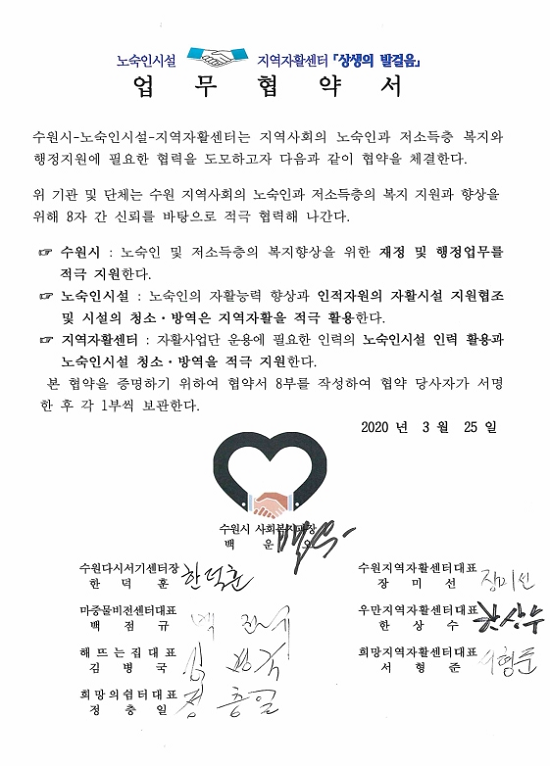 노숙인시설 지역자활센터 「상생의 발걸음」
업 무 협 약 서
수원시-노숙인시설-지역자활센터는 지역사회의 노숙인과 저소득층 복지와
행정지원에 필요한 협력을 도모하고자 다음과 같이 협약을 체결한다.
위 기관 및 단체는 수원 지역사회의 노숙인과 저소득층의 복지 지원과 향상을
위해 8자 간 신뢰를 바탕으로 적극 협력해 나간다.
☞ 수원시 : 노숙인 및 저소득층의 복지향상을 위한 재정 및 행정업무를
적극 지원한다.
☞ 노숙인시설 : 노숙인의 자활능력 향상과 인적자원의 자활시설 지원협조
및 시설의 청소·방역은 지역자활을 적극 활용한다.
☞ 지역자활센터 : 자활사업단 운용에 필요한 인력의 노숙인시설 인력 활용과
노숙인시설 청소·방역을 적극 지원한다.
본 협약을 증명하기 위하여 협약서 8부를 작성하여 협약 당사자가 서명
한 후 각 1부씩 보관한다.
2020 년 3 월 25 일
수원시 사회복지과장
백 운 오
수원다시서기센터장
한 덕 훈 한덕훈
마중물비전센터대표
백 점 규
해 뜨 는 집 대 표
김 병 국
희망의쉼터대표
정 충 일 정 충일
수원지역자활센터대표
장 미 선 장미선
우만지역자활센터대표
한 상 수 한상수
희망지역자활센터대표
서 형 준 서형준